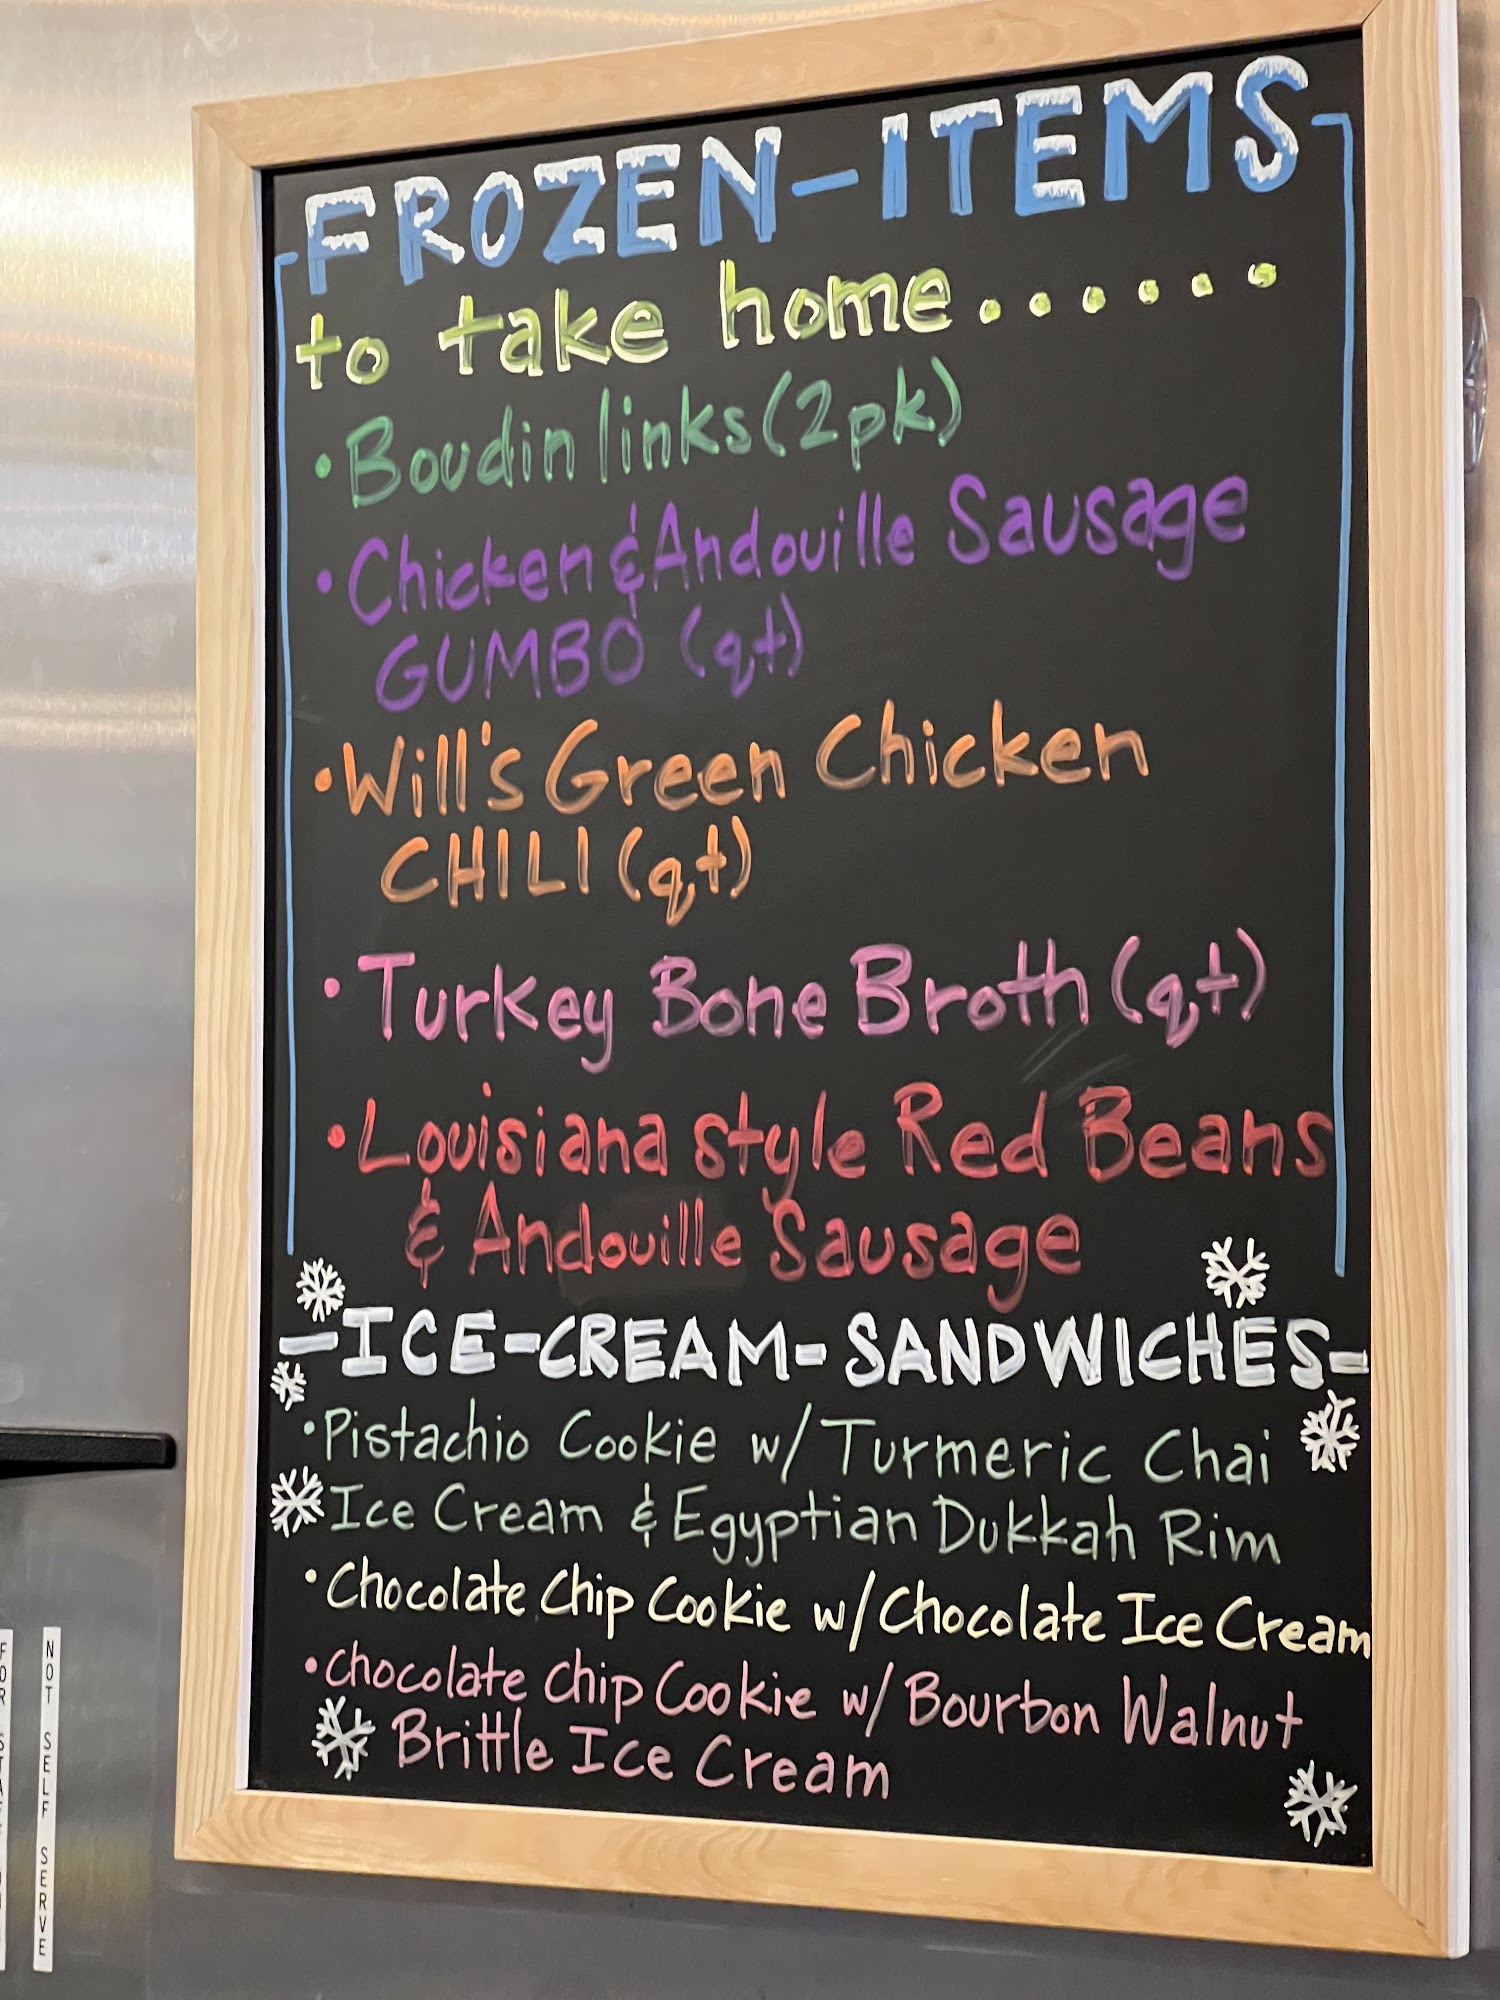 FROZEN-ITEMS
to take home......
•Boudin links (2pk)
•Chicken & Andouille Sausage
GUMBO (qt)
•Will's Green Chicken
CHILI (qt)
•Turkey Bone Broth (qt)
•Louisiana style Red Beans
& Andouille Sausage
-ICE-CREAM-SANDWICHES-
•Pistachio Cookie w/ Turmeric Chai
Ice Cream & Egyptian Dukkah Rim
•Chocolate Chip Cookie w/ Chocolate Ice Cream
•Chocolate Chip Cookie w/ Bourbon Walnut
Brittle Ice Cream
NOT SELF SERVE
FOR